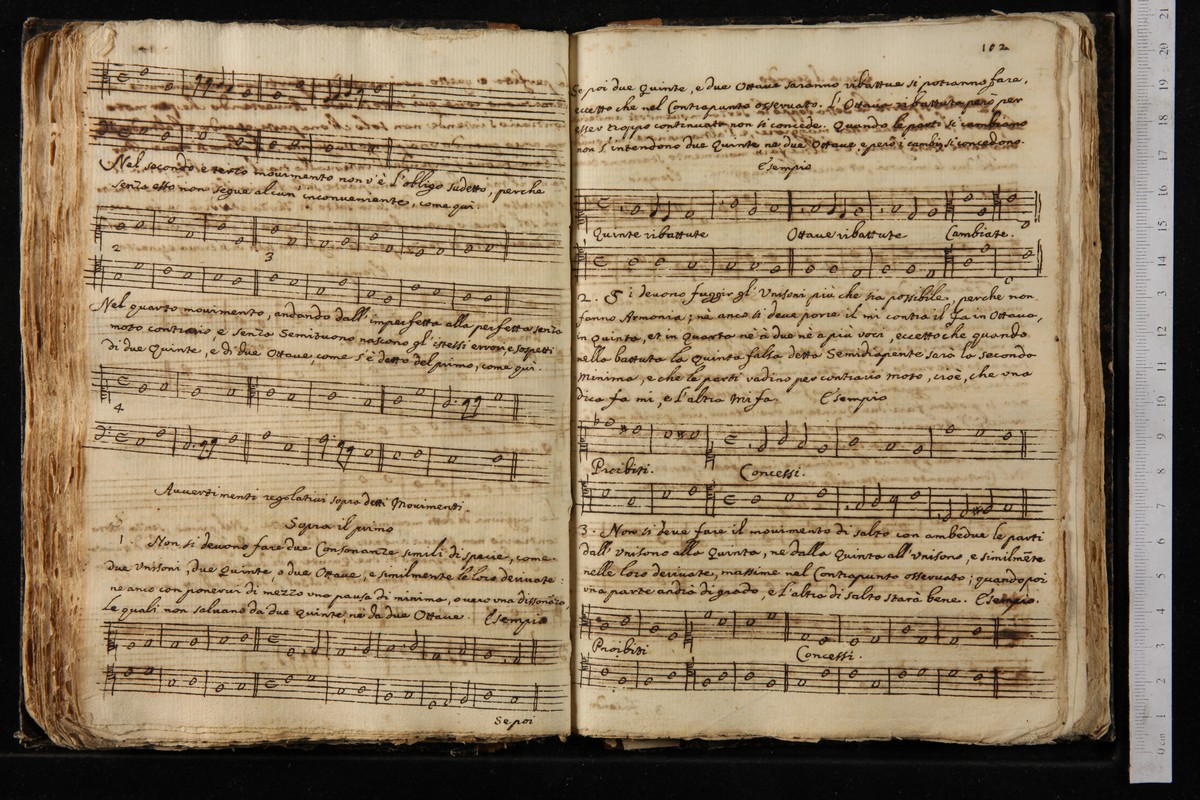 Nel secondo, e terzo movimento non v'è l'obligo sudetto, perche
senza esso non segue alcun' inconueniente, come qui.
2 3
Nel quarto movimento, andando dall' imperfetta alla perfetta senza
moto contrario, e senza Semituono nascono gl' istessi errori, e sospetti
di due Quinte, e di due Ottaue, come s'è detto del primo, come qui.
4
Auuertimenti regolatiui sopra detti Movimenti.
Sopra il primo
1 Non si deuono fare due Consonanze simili di specie, come
due Vnisoni, due Quinte, o due Ottaue, e similmente le loro deriuate:
ne anco con ponerui di mezzo una pausa di minima, o uero una dissonanza,
le quali non saluano da due Quinte, ne da due Ottaue Esempio
Se poi
102
Se poi due Quinte, e due Ottaue saranno ribattue si potranno fare,
eccetto che nel Contrapunto osseruato. L'Ottaua ribattuta però per
esser troppo continuata non si concede. Quando le parti si cambiano
non s'intendono due Quinte ne due Ottaue, e però i cambij si concedono.
Esempio
Quinte ribattute Ottaue ribattute Cambiate.
2. Si deuono fuggir gl' Vnisoni più che sia possibile, perche non
fanno Armonia; nè anco si deue porre il mi contra il fa in Ottaua,
in Quinta, et in Quarta nè à due nè à più voci, eccetto che quando
nella battuta la Quinta falsa detta Semidiapente sarà la seconda
Minima, e che le parti vadino per contrario moto, cioè, che una
dica fa mi, e l'altra mi fa. Esempio
Proibiti. Concessi.
3. Non si deue fare il mouimento di salto con ambedue le parti
dall' Vnisono alla Quinta, ne dalla Quinta all' Vnisono, e similmēte
nelle loro deriuate, massime nel Contrapunto osseruato; quando poi
una parte andrà di grado, e l'altra di salto starà bene. Esempio.
Proibiti Concessi.